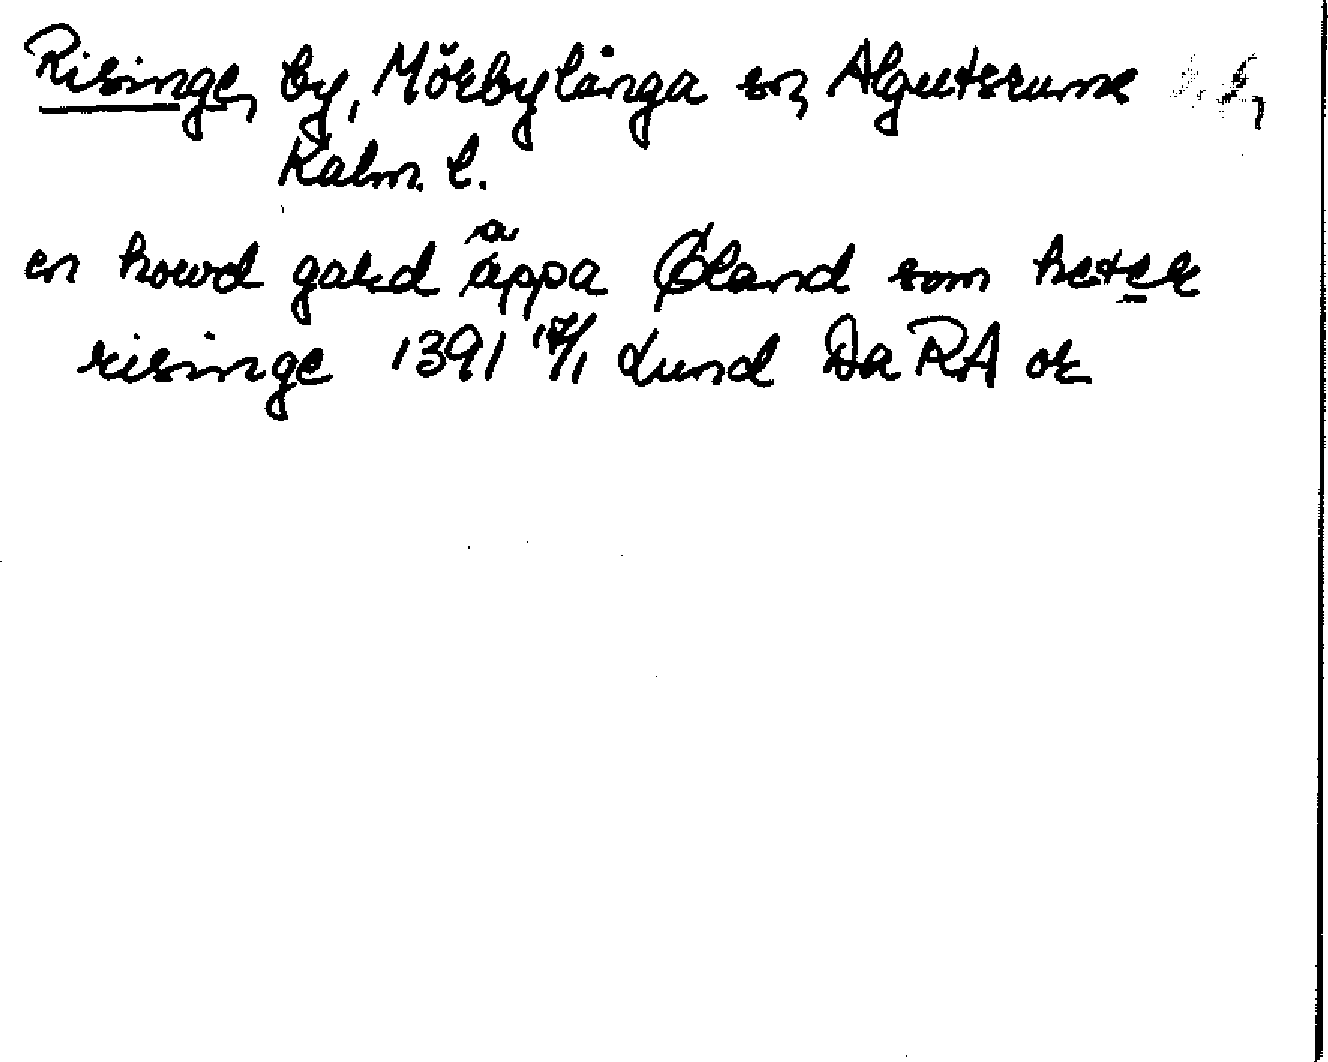 Risinge, by, Mörbylånga sn, Algutsrums h.,
Kalm. l.
en howd gard åppa Øland som heter
risinge 1391 17/1 Lund Da RA or